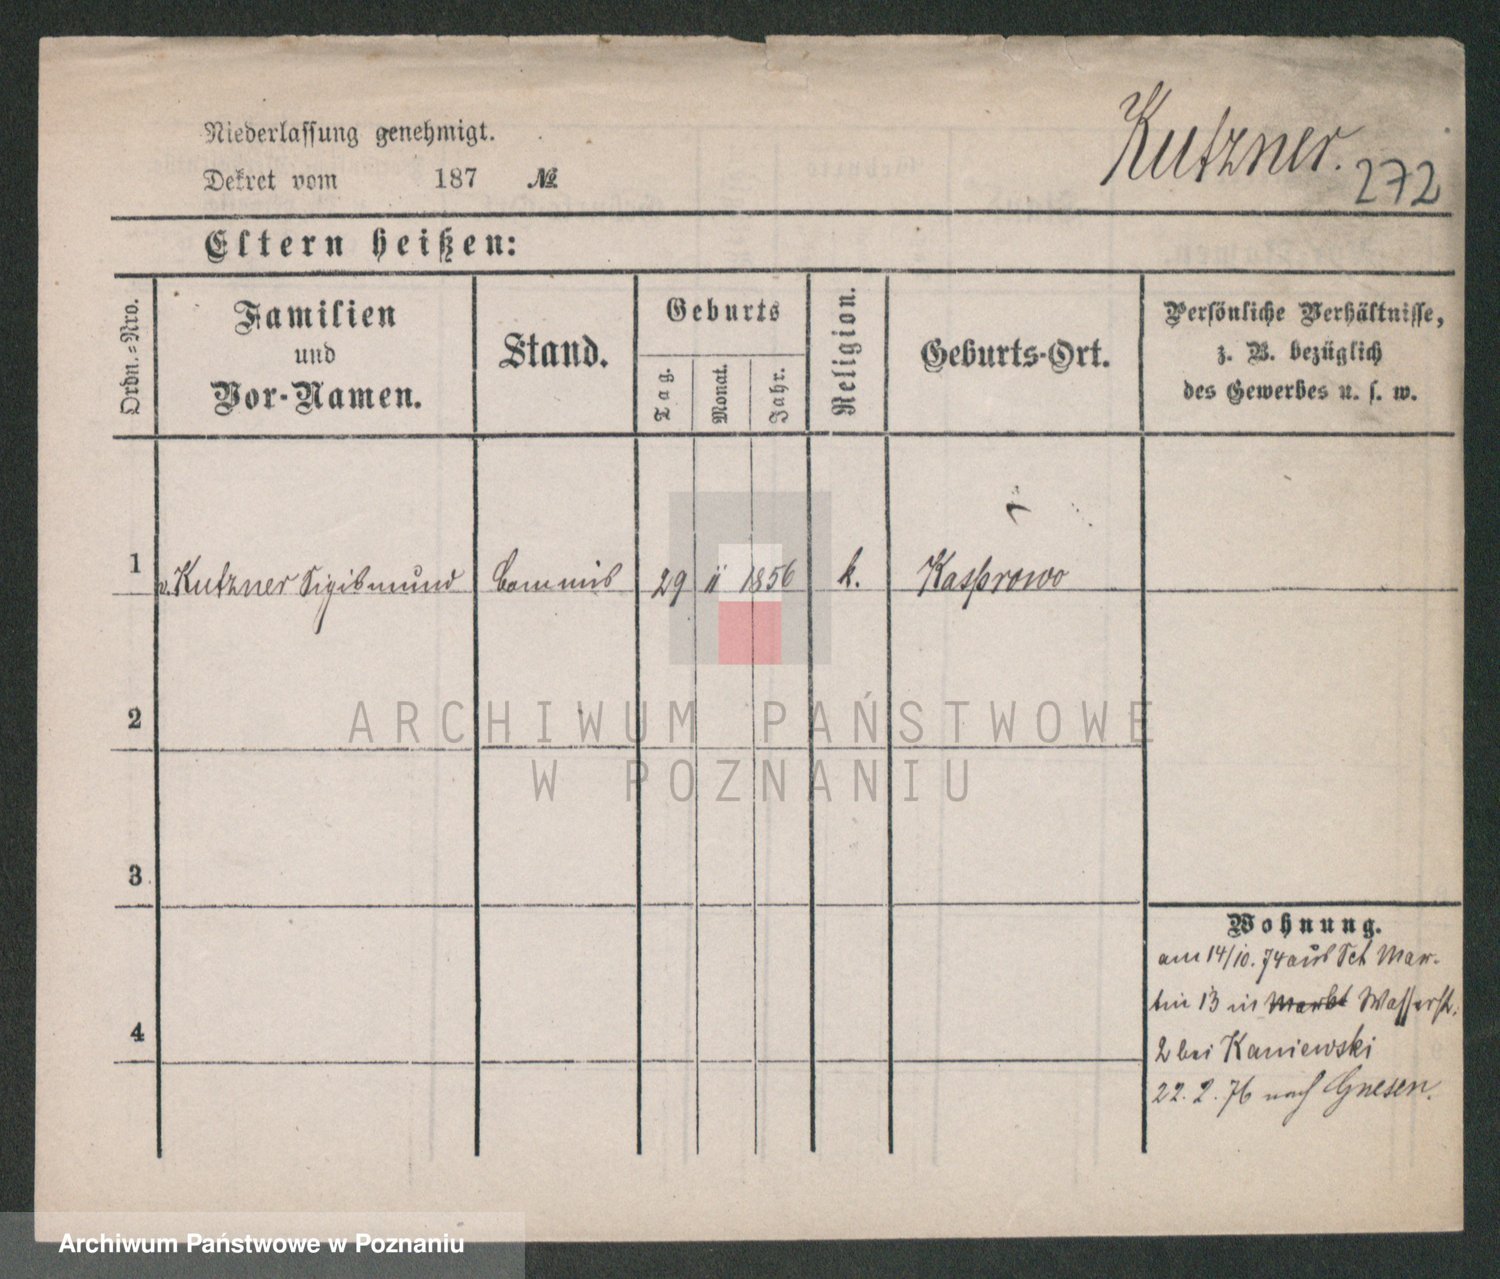 Niederlassung genehmigt.
Dekret vom 187 №
Kutzner.
272
Eltern heißen:
Ordn.-Nro.
Familien
und
Vor-Namen.
Stand.
Geburts
Tag.
Monat.
Jahr.
Religion.
Geburts-Ort.
Persönliche Verhältnisse,
z. B. bezüglich
des Gewerbes u. s. w.
1 v. Kutzner Sigismund Commis 29 ii 1856 k. Kasprowo
2
3
4
Wohnung.
am 14/10. 74 aus Sct Mar-
tin 13 in Markt Wasserst.
2 bei Kaniewski
22. 2. 76 nach Gnesen.
ARCHIWUM PAŃSTWOWE
W POZNANIU
Archiwum Państwowe w Poznaniu